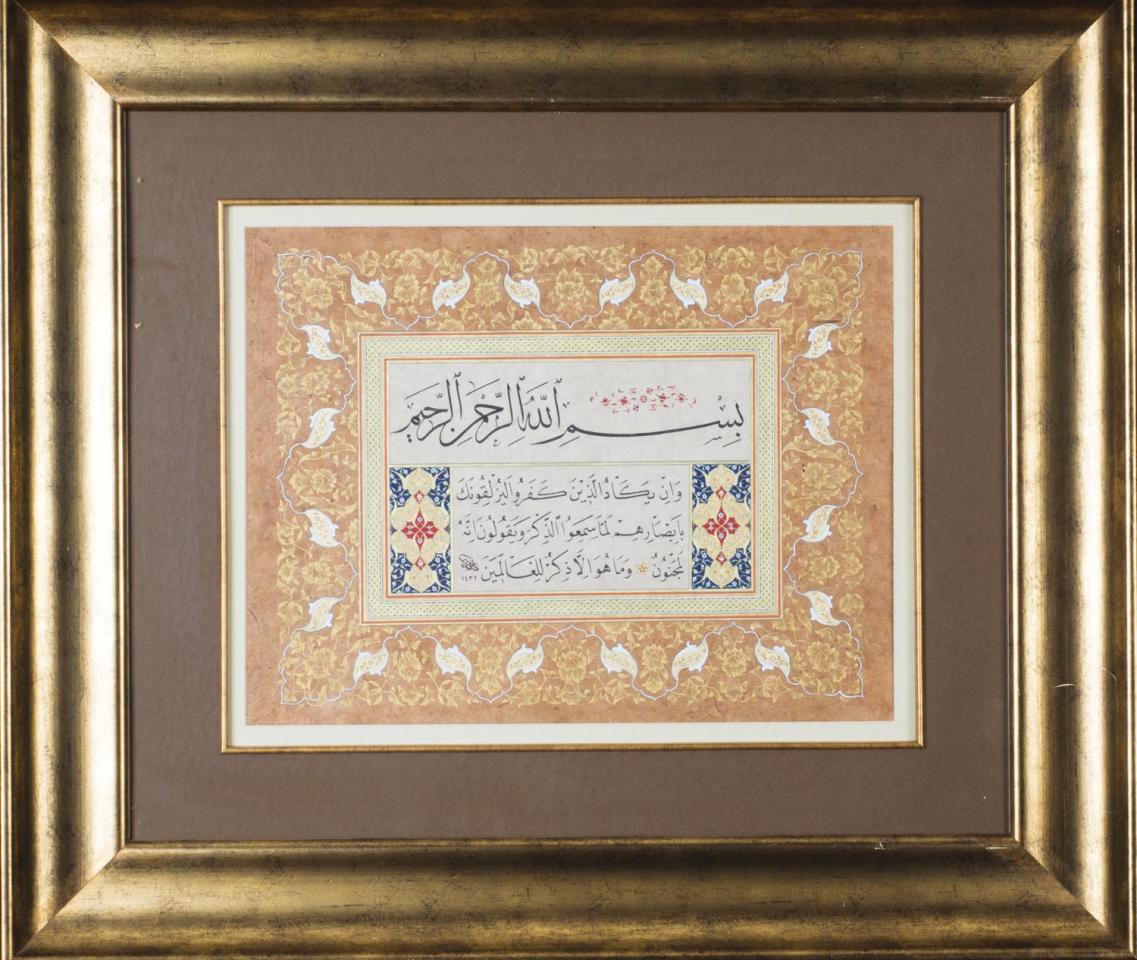 بِسْمِ اللّٰهِ الرَّحْمٰنِ الرَّحِيمِ
وَاِنْ يَكَادُ الَّذِينَ كَفَرُوا لَيُزْلِقُونَكَ
بِاَبْصَارِهِمْ لَمَّا سَمِعُوا الذِّكْرَ وَيَقُولُونَ اِنَّهُ
لَمَجْنُونٌ وَمَا هُوَ اِلَّا ذِكْرٌ لِلْعَالَمِينَ
١٤٣٢